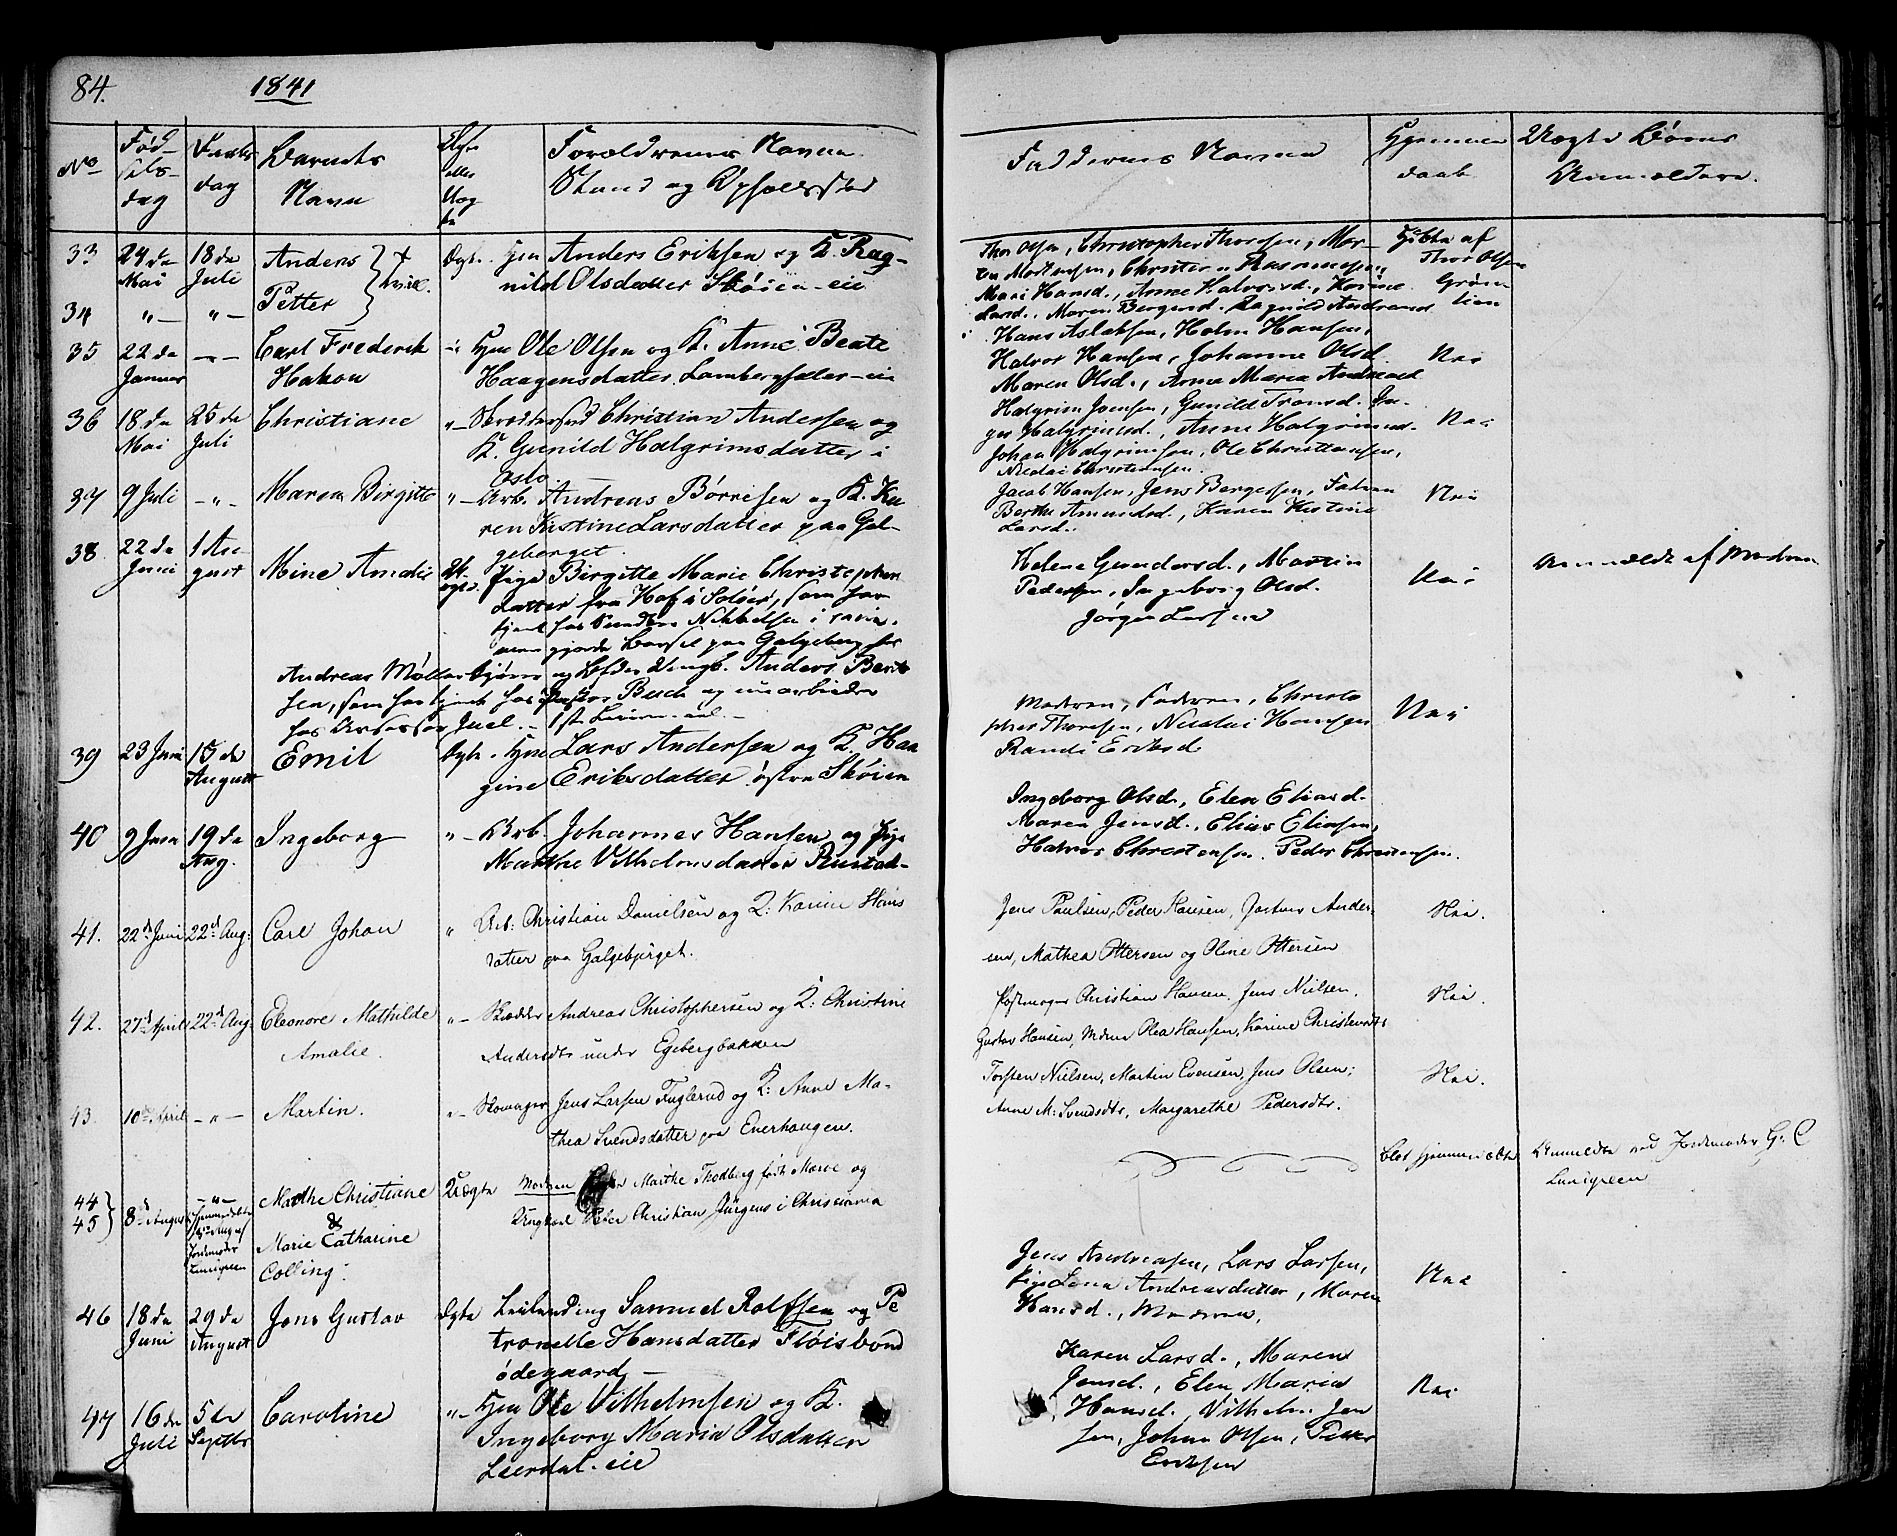 84. 1841
No Fød- sels- dag Daabs dag Barnets Navn Ægte eller Uæg te Forældrenes Navne Stand og Opholdssted Faddernes Navne Hjemme daab Uægte Børns Anmeldere.
33 24de Mai 18de Juli Anders } tvill. Ægte. Hm Anders Eriksen og K. Rag-
nild Olsdatter Skøien-eie
34 " — " — Petter
Thor Olsen, Christopher Thoresen, Mor-
ten Mortensen, Christian Rasmussen,
Mari Hansd., Anne Halvorsd., Karine
Larsd., Maren Bergersd. Ragnild Andreasd
Døbt af Thor Olsen Grøn- lien
35 22de Januar — " — Carl Frederik Hakon " Hm Ole Olsen og K. Anne Beate
Haagensdatter, Lambergsæter-eie
Hans Aslaksen, Holm Hansen,
Halvor Hansen, Johanne Olsd.
Maren Olsd., Anne Maria Andreasd
Nei
36 18de Mai 25de Juli Christiane " — Christian Andersen og
K. Gunild Halgrimsdatter i
Oslo.
Halgrim Joensen, Gunild Tronsd. In-
ger Halgrimsd., Anne Halgrimsd.
Johan Halgrimsen, Ole Christiansen,
Nicolai Christiansen.
Nei
37 9 Juli — " — Maren Birgitte " — Arb. Andreas Børresen og K. Ka
ren Kistine Larsdatter paa Gal-
geberget.
Jacob Hansen, Jens Bergesen, Faderen
Berthe Amundsd., Karen Kistine
Larsd.
Nei
38 22de Juni 1 Au- gust Mine Amalie Uægte. Pige Birgitte Marie Christophers
datter fra Hof i Soløer, som har
tjent hos
gjorde Barsel paa Galgeberg hos
Andreas Møller og Udlagt Fader Ungk. Anders Bent
sen, som har tjent hos Pastor Buch og nu arbeider
hos Juel. — 1ste Leierm-aal. —
Helene Gundersd., Martin
Pedersen, Ingeborg Olsd.
Jørgen Larsen
Nei
Anmeldt af Moderen
39 23 Juni 15de August Emil Ægte. Hm Lars Andersen og K. Haa
gine Eriksdatter østre Skøien
Moderen, Faderen, Christo
pher Thoresen, Nicolai Hansen
Randi Eriksd
Nei
40 9 Juni 19de Aug. Ingeborg " — Arb. Johannes Hansen og Pige
Marthe Vilhelmsdatter Rustad-
Ingeborg Olsd., Elen Eliasd.
Maren Jensd., Elias Eliasen,
Halvor Christensen. Peder Christensen.
41. 22de Juni 22de Aug: Carl Johan " Arb: Christian Danielsen og K: Karine Hans
datter paa Galgebjerget.
Jens Paulsen, Peder Hansen, Ander-
sen, Mathea Ottersen og Oline Ottersen
Nei.
42. 27de April 22de Aug Eleonore Mathilde Amalie. " — Skrædder Andreas Christophersen og K: Christine
Andersdtr under Egebergbakken
Christian Hansen, Jens Nielsen,
Gustav Hansen, Mdme Olea Hansen, Karine Christensdtr
Nei.
43. 10de April — " — Martin. " — Skomager Jens Larsen Fuglerud og K: Anne Ma-
thea Svendsdatter paa Enerhaugen.
Torsten Nielsen, Martin Evensen, Jens Olsen;
Anne M: Svendsdtr, Margarethe Pedersdtr.
Nei.
44 45 } 8de August — " — Hjemmedøbt af Jordmoder Lunigreen Marthe Christiane
&
Marie Catharine
Colling.
Uægte Moderen Marthe Thodberg født Marve og
Ungkarl Peter Christian Jürgens i Christiania
blot hjemmedøbte Anmeldte ved Jordemoder G. C
Lunigreen
46 18de Juni 29de August Jens Gustav Ægte Leilending Samuel Rolfsen og Pe
tronelle Hansdatter Fløisbond
ødegaard —
Jens Andreasen, Lars Larsen,
Pige Lena Andreasdatter, Maren
Hansd., Moderen,
Nei
47 16de Juli 5te Septbr Caroline " — Hm Ole Vilhelmsen og K.
Ingeborg Maria Olsdatter
Leerdal-eie
Karen Larsd., Maren
Jensd., Elen Maria
Hansd., Vilhelm Jen
sen, Johan Olsen, Peder
Eriksen
Nei